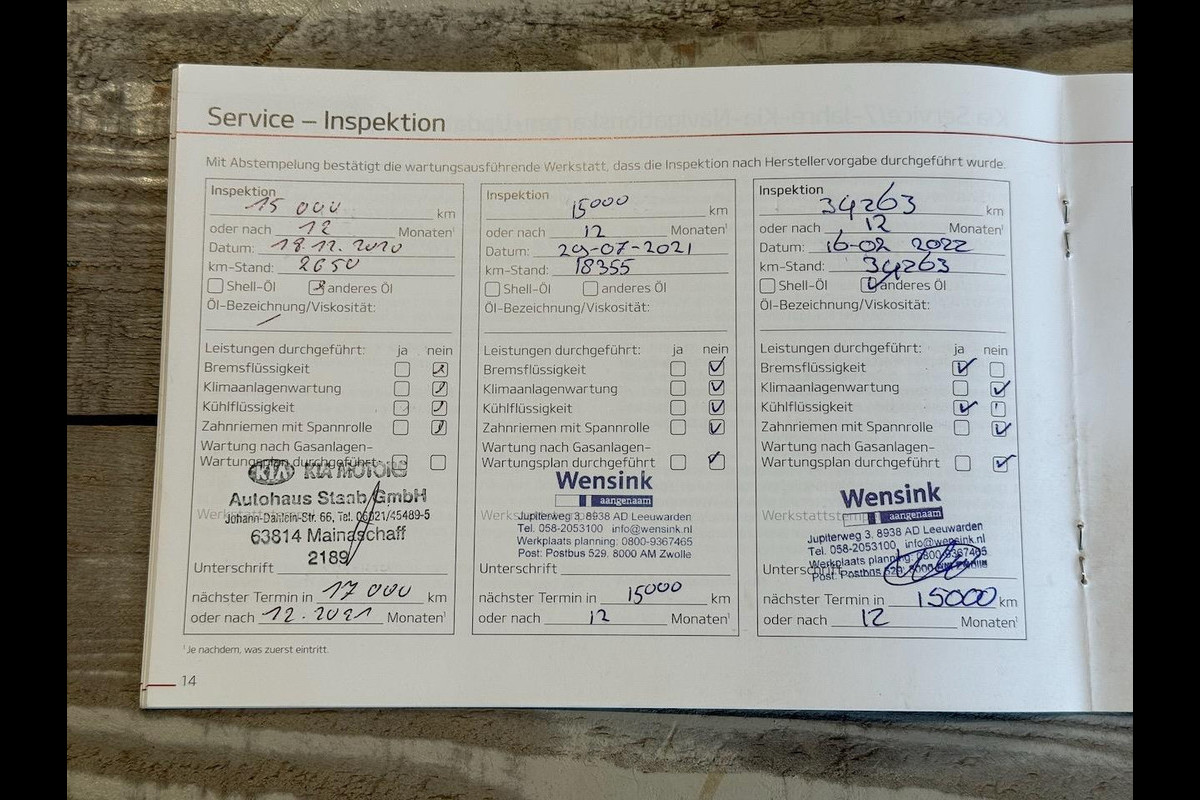 Service – Inspektion
Mit Abstempelung bestätigt die wartungsausführende Werkstatt, dass die Inspektion nach Herstellervorgabe durchgeführt wurde.
Inspektion
15 000 km
oder nach 12 Monaten¹
Datum: 18.12.2020
km-Stand: 2650
Shell-Öl anderes Öl
Öl-Bezeichnung/Viskosität:
Leistungen durchgeführt: ja nein
Bremsflüssigkeit
Klimaanlagenwartung
Kühlflüssigkeit
Zahnriemen mit Spannrolle
Wartung nach Gasanlagen-
Wartungsplan durchgeführt
KIA KIA MOTORS
Autohaus Staab GmbH
Werkstattstempel
Johann-Dahlem-Str. 66, Tel. 06021/45489-5
63814 Mainaschaff
2189
Unterschrift
nächster Termin in 17 000 km
oder nach 12.2021 Monaten¹
Inspektion
15000 km
oder nach 12 Monaten¹
Datum: 29-07-2021
km-Stand: 18355
Shell-Öl anderes Öl
Öl-Bezeichnung/Viskosität:
Leistungen durchgeführt: ja nein
Bremsflüssigkeit
Klimaanlagenwartung
Kühlflüssigkeit
Zahnriemen mit Spannrolle
Wartung nach Gasanlagen-
Wartungsplan durchgeführt
Wensink
aangenaam
Werkstattstempel
Jupiterweg 3, 8938 AD Leeuwarden
Tel. 058-2053100 info@wensink.nl
Werkplaats planning: 0800-9367465
Post: Postbus 529, 8000 AM Zwolle
Unterschrift
nächster Termin in 15000 km
oder nach 12 Monaten¹
Inspektion
34263 km
oder nach 12 Monaten¹
Datum: 16-02 2022
km-Stand: 34263
Shell-Öl anderes Öl
Öl-Bezeichnung/Viskosität:
Leistungen durchgeführt: ja nein
Bremsflüssigkeit
Klimaanlagenwartung
Kühlflüssigkeit
Zahnriemen mit Spannrolle
Wartung nach Gasanlagen-
Wartungsplan durchgeführt
Wensink
aangenaam
Werkstattstempel
Jupiterweg 3, 8938 AD Leeuwarden
Tel. 058-2053100 info@wensink.nl
Werkplaats planning: 0800-9367465
Post: Postbus 529, 8000 AM Zwolle
Unterschrift
nächster Termin in 15000 km
oder nach 12 Monaten¹
¹Je nachdem, was zuerst eintritt.
14